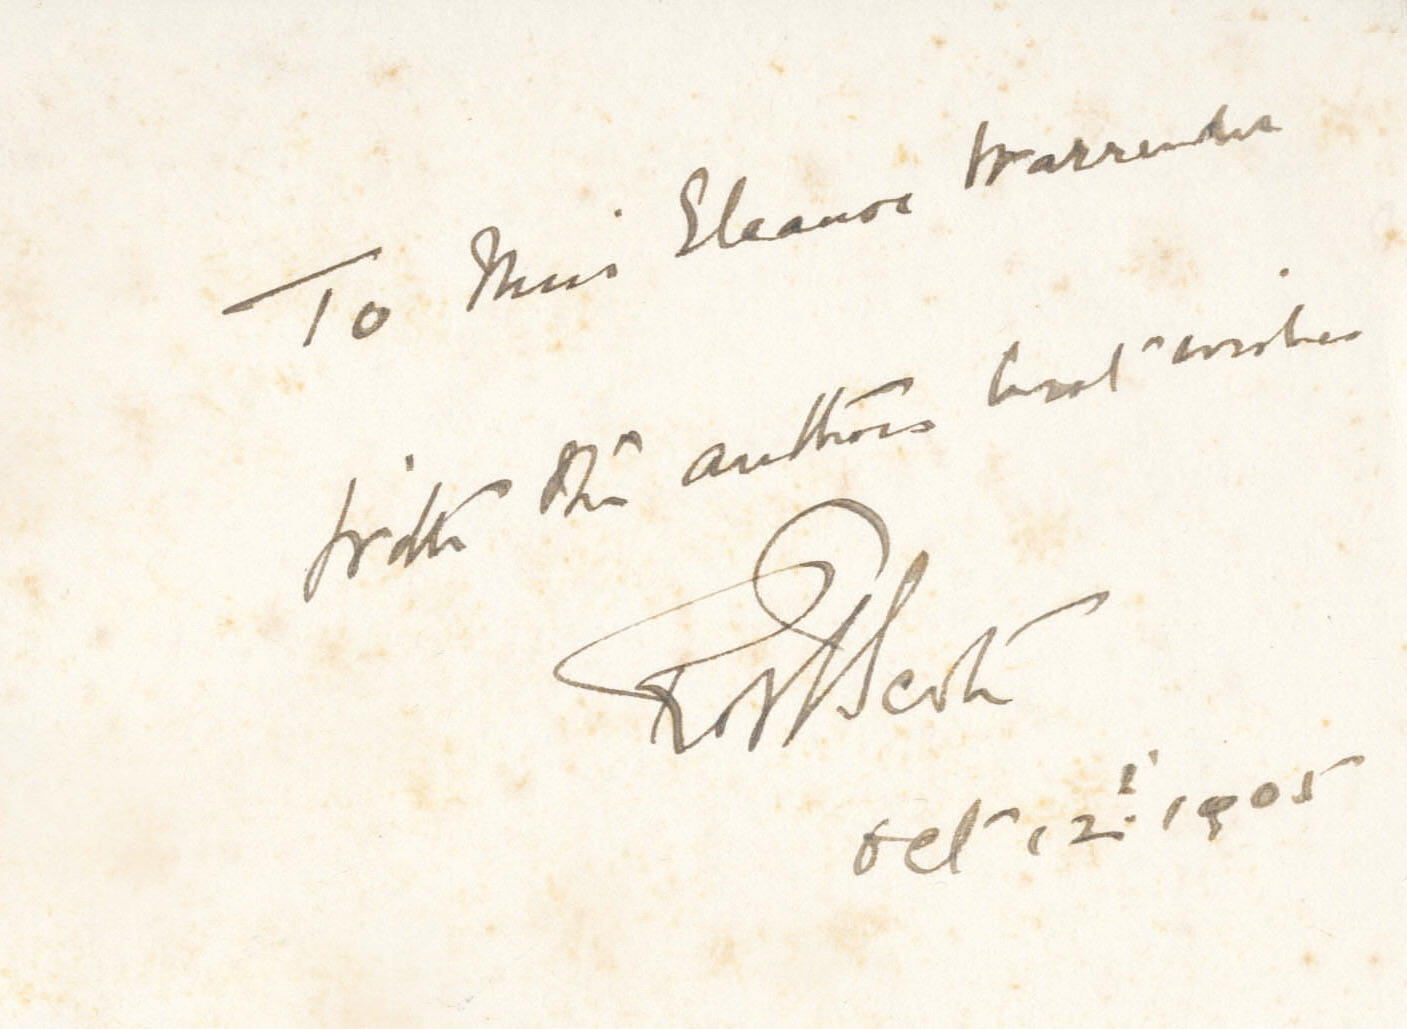 To Miss Eleanor Warrender
with the authors best wishes
RFScott
Oct 12th 1905